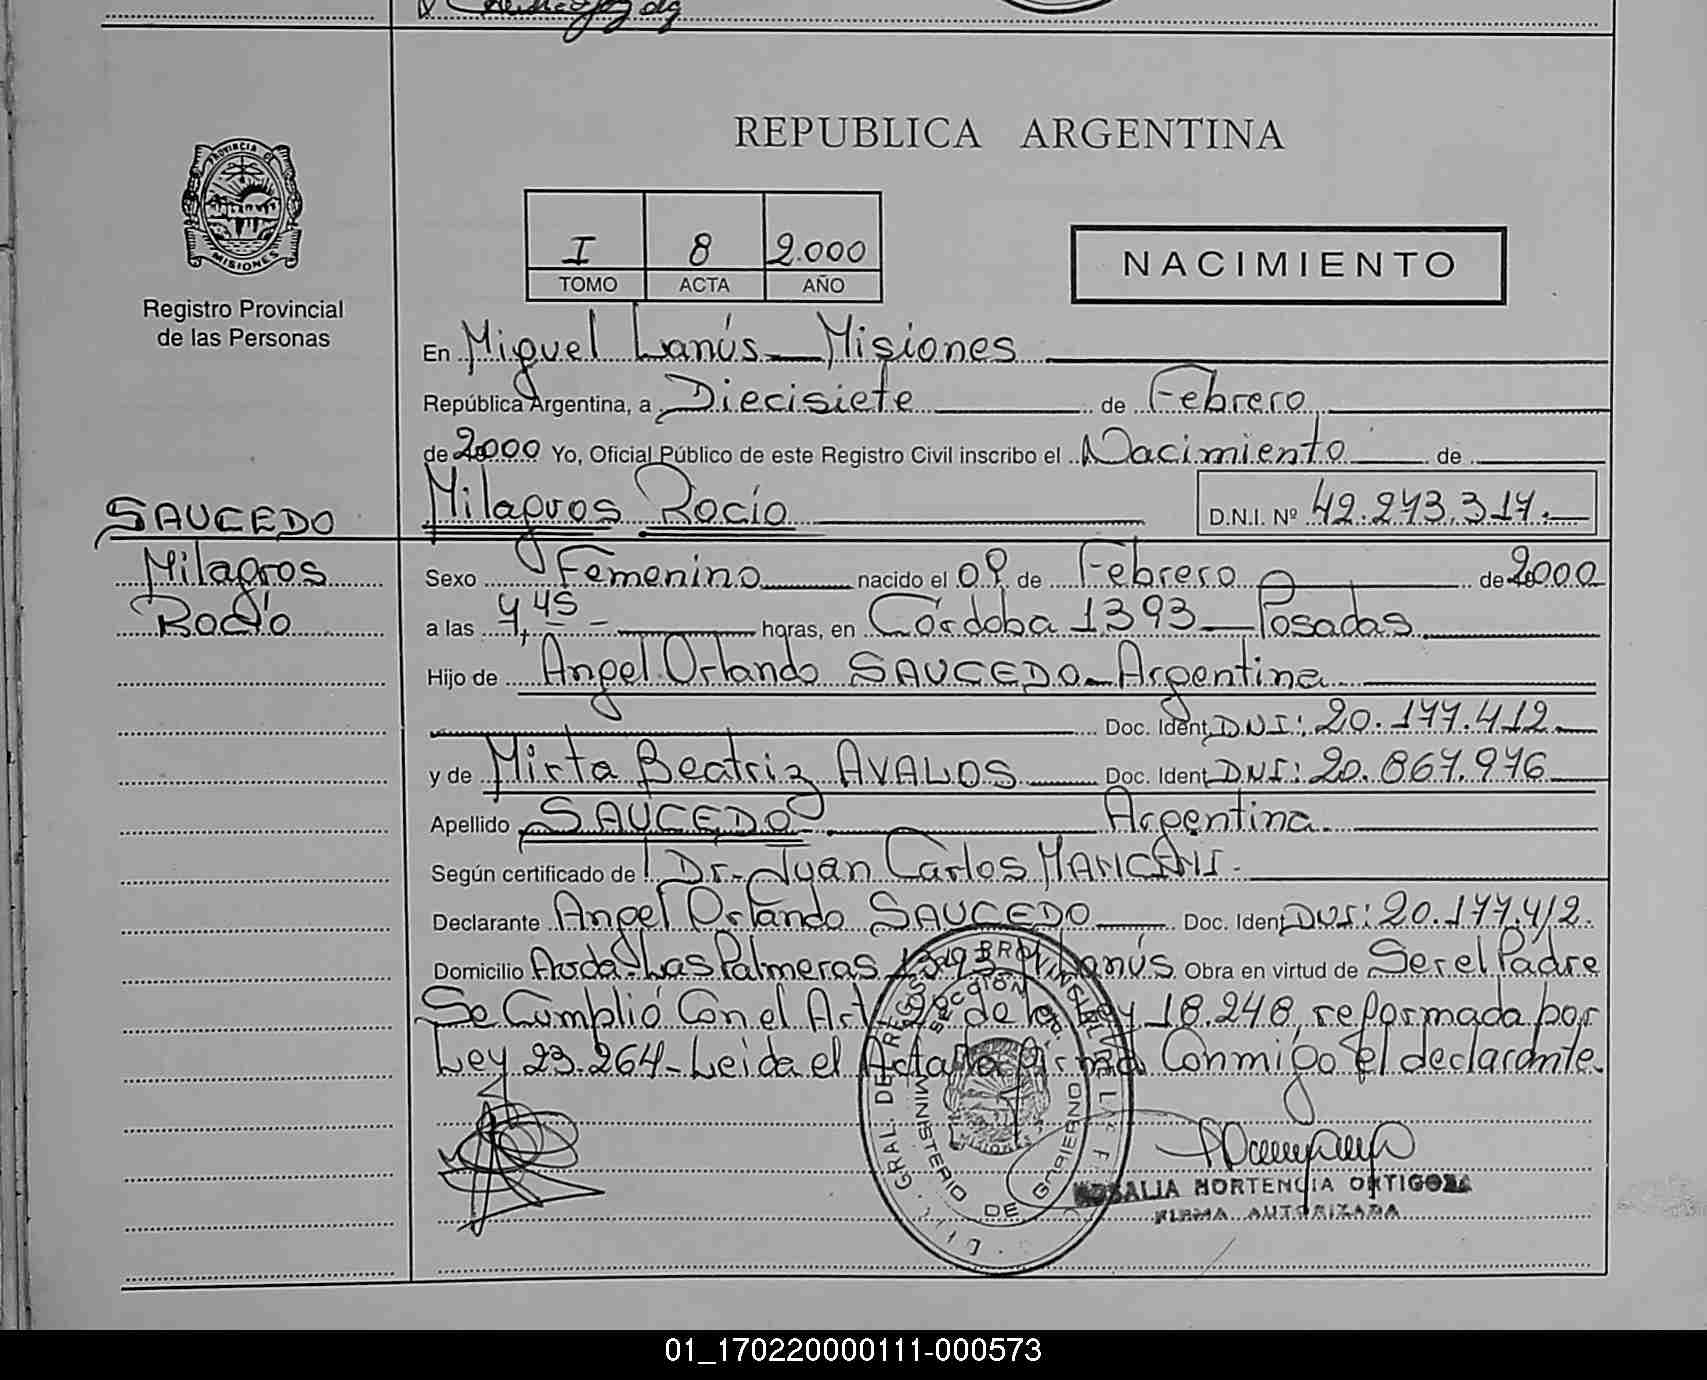 REPUBLICA ARGENTINA
PROVINCIA DE
MISIONES
Registro Provincial
de las Personas
I 8 2.000
TOMO ACTA AÑO
NACIMIENTO
En Miguel Lanús - Misiones
República Argentina, a Diecisiete de Febrero
de 2000 Yo, Oficial Público de este Registro Civil inscribo el Nacimiento de
Milagros Rocío D.N.I. Nº 42.273.317.-
SAUCEDO
Milagros
Rocío
Sexo Femenino nacido el 09 de Febrero de 2000
a las 7,45 - horas, en Córdoba 1393 - Posadas
Hijo de Angel Orlando SAUCEDO - Argentina
Doc. Ident DNI: 20.177.412
y de Mirta Beatriz AVALOS Doc. Ident DNI: 20.867.976
Apellido SAUCEDO Argentina
Según certificado de Dr. Juan Carlos
Declarante Angel Orlando SAUCEDO Doc. Ident DNI: 20.177.412.
Domicilio Avda. Las Palmeras Lanús Obra en virtud de Ser el Padre
Se Cumplió Con el Art. 2º de la Ley 18.248, reformada por
Ley 23.264 - Leida el Acta la Firma Conmigo el declarante.
MINISTERIO DE GOBIERNO
ROSALIA HORTENCIA ORTIGOZA
FIRMA AUTORIZADA
01_170220000111-000573